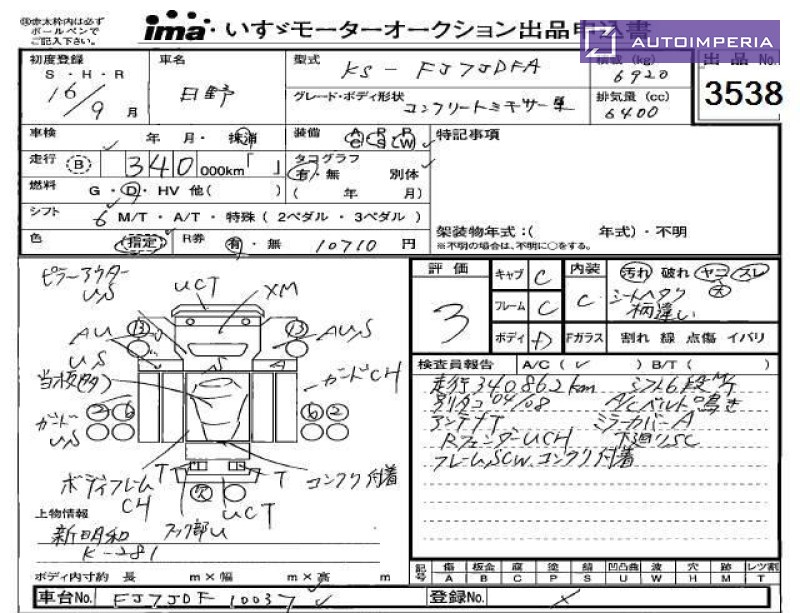 ㊟赤太枠内は必ず
ボールペンで
ご記入下さい。
ima・いすゞモーターオークション出品申込書
AUTOIMPERIA
初度登録
S・H・R
16/9 月
車名
日野
型式
KS-FJ7JDFA
積載 (kg)
6920
出品No.
3538
グレード・ボディ形状
コンクリートミキサー車
排気量 (cc)
6400
車検 年 月・抹消
装備 AC PS PW
特記事項
走行 B 340 000km「 」
タコグラフ
有・無 別体
( 年 月)
燃料 G・D・HV 他( )
シフト 6 M/T・A/T・特殊(2ペダル・3ペダル)
色 (指定) R券 有・無 10710 円
架装物年式:( 年式)・不明
※不明の場合は、不明に○をする。
評価
3
キャブ C
フレーム C
ボディ D
内装 C
汚れ 破れ ヤコ スレ
シートヘタリ 大
柄違い
Fガラス 割れ 線 点傷 イバリ
ピラーアウター
US
UCT
XM
AU
US
13
13
AU,S
S
A
ガードCH
ガード
US
2 6
6 2
ボディフレーム
CH
T
T
コンクリ付着
穴
UCT
フック部U
検査員報告 A/C( ✓ ) B/T( )
走行340862km シフト6段MT
別タコ'04/08 A/Cベルト鳴き
アンテナT ミラーカバーA
RフェンダーUCH 下廻りSC
フレームSCW コンクリ付着
上物情報
新明和
K-281
ボディ内寸約 長 m×幅 m×高 m
記号 傷A 板金B 腐C 塗P 錆S 凹凸曲U 波W 穴H 跡M レンツ割T
車台No. FJ7JDF 10037
登録No.